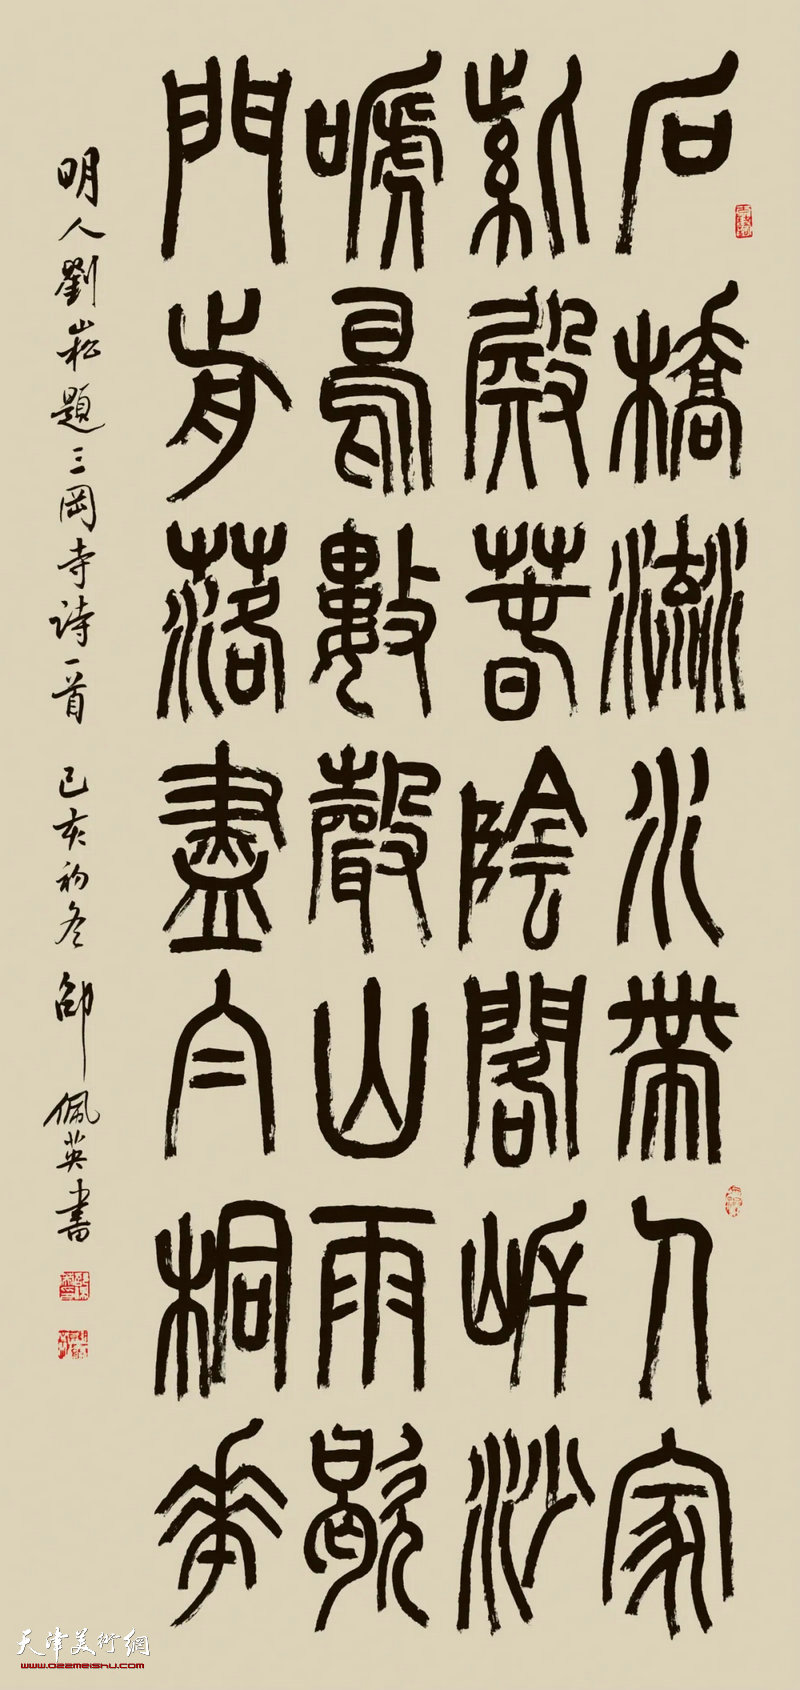 石橋流水帶人家
紫殿春陰閣岸沙
嗁鳥數聲山雨歇
門前落盡白桐花
明人劉崧題三岡寺詩一首 己亥初冬 邵佩英書
天津美術網
www.022meishu.com